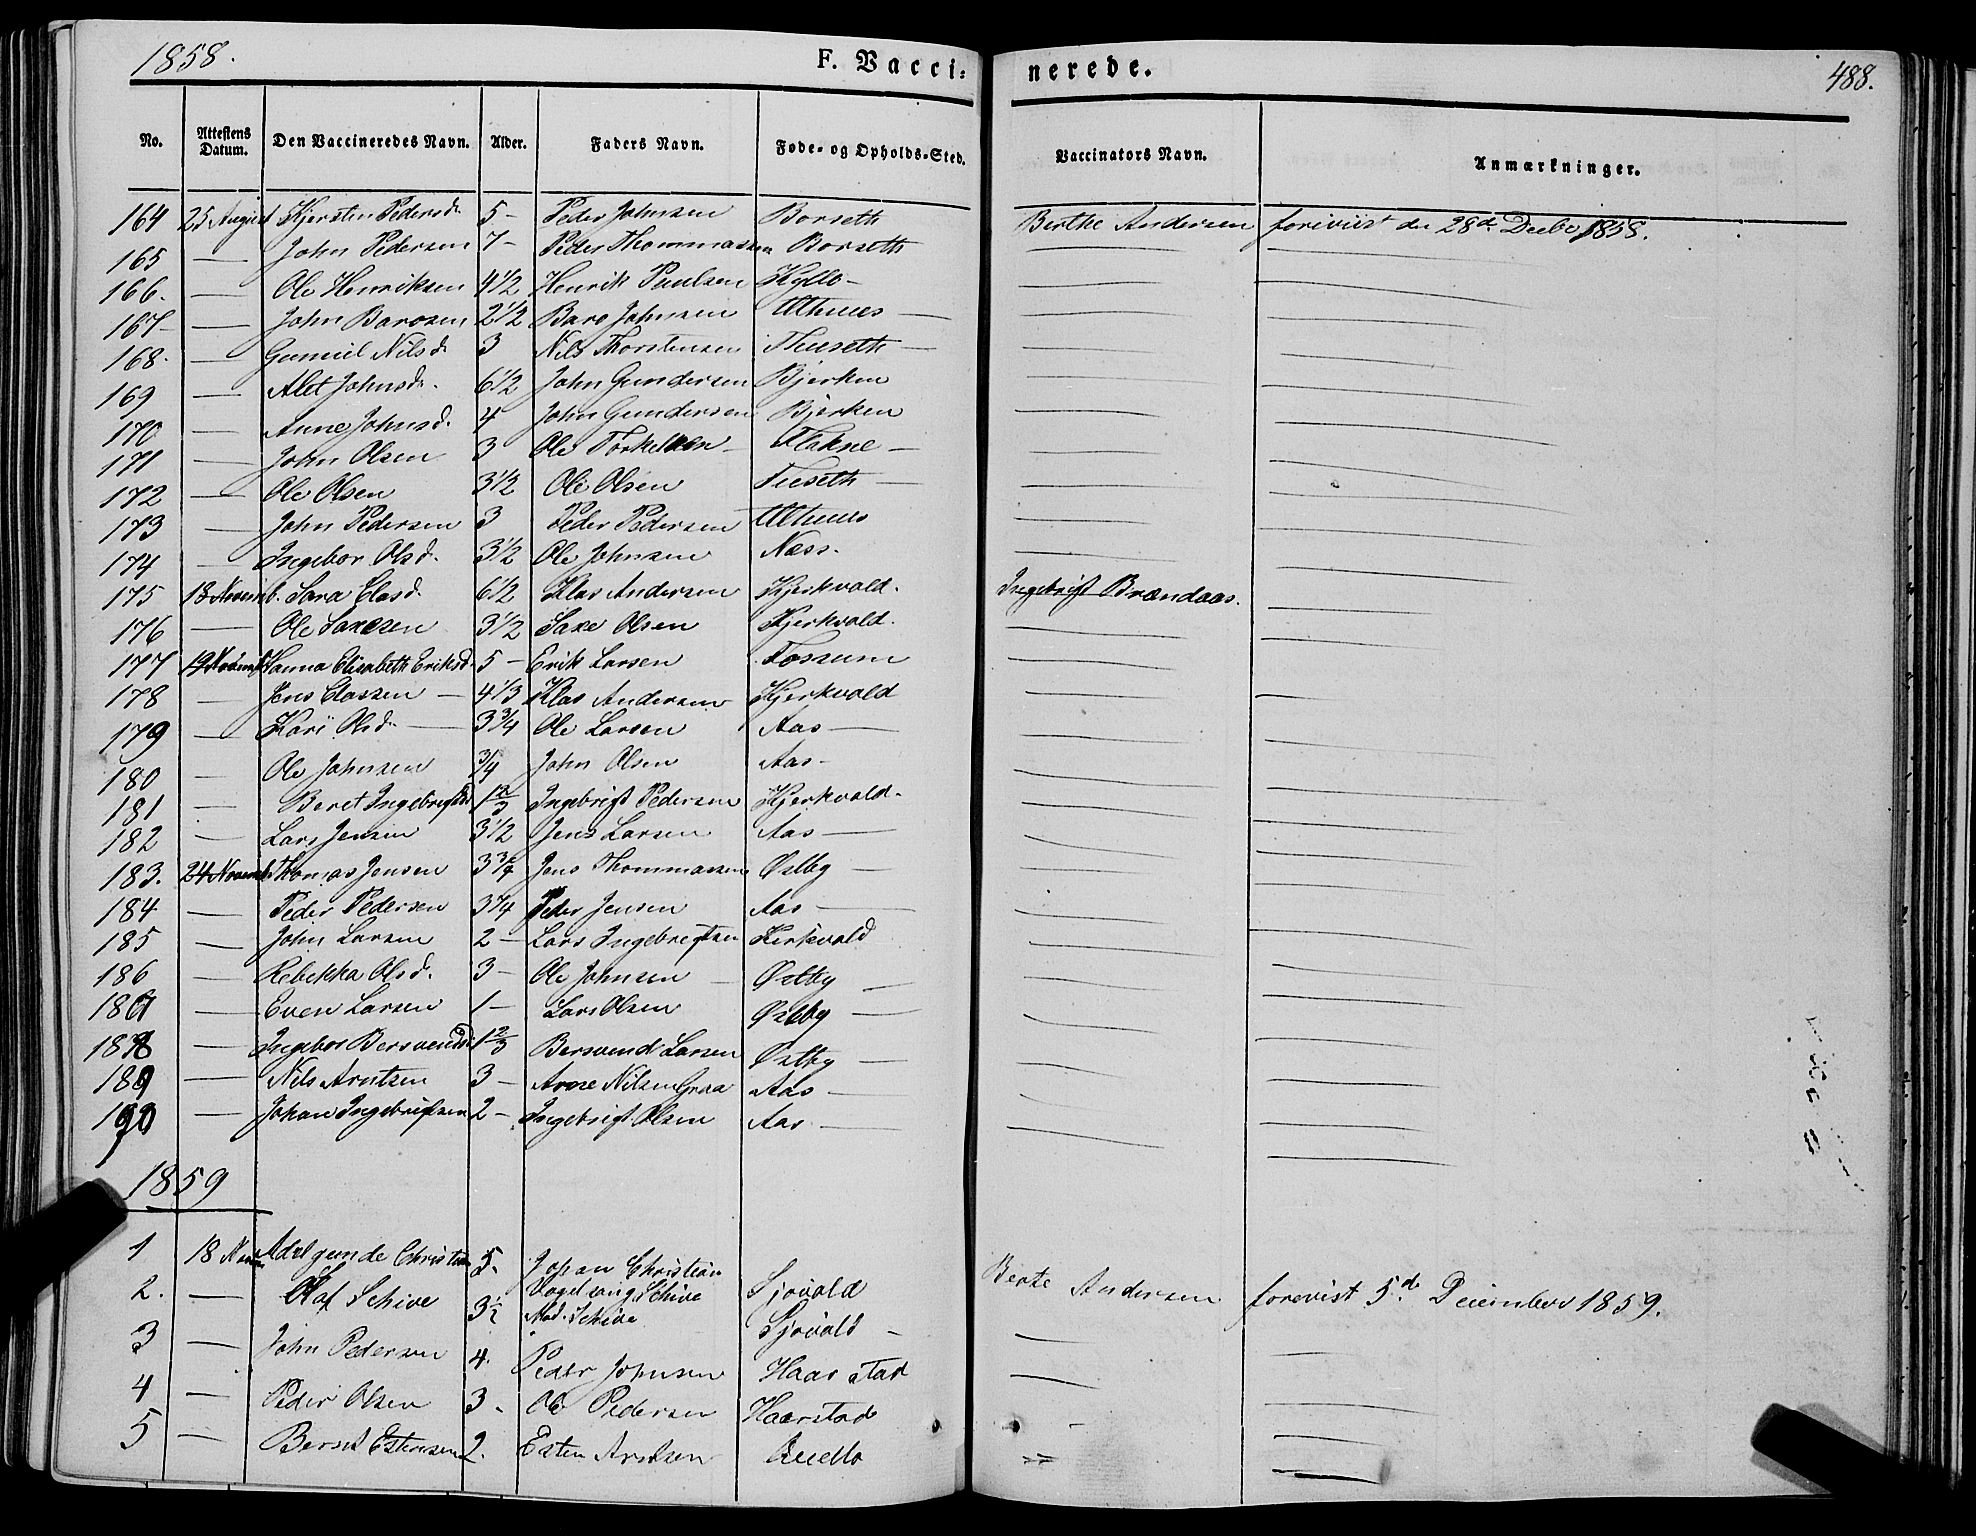 1858.
F. Vaccinerede.
488.
No. Attestens Datum. Den Vaccineredes Navn. Alder. Faders Navn. Føde- og Opholds-Sted. Vaccinators Navn. Anmærkninger.
164 25 August Kjersten Pedersd. 5 - Peder Johnsen Borseth Berthe Andersen foreviist den 28de Decbr 1858.
165 — John Pedersen 7 - Peder Thommassen Borseth
166. — Ole Henriksen 4 1/2 Henrik Paulsen Kyllo -
167 - — John Barosen 2 1/2 Baro Johnsen Athues —
168. — Gunniel Nilsd. 3 Nils Thorstensen Theuseth —
169 — Alet Johnsd. 6 1/2 John Gundersen Bjerken
170 — Anne Johnsd. 4 John Gundersen Bjerken
171 — John Olsen 3 Ole Torkelsen - Flakne —
172 — Ole Olsen 3 1/2 Ole Olsen Tieseth —
173 — John Pedersen 3 Peder Pedersen Athues
174 — Ingebor Olsd. 3 1/2 Ole Johnsen Næss.
175 18 Novemb. Sara Clasd. 6 1/2 Klas Andersen Kjerkvold. Ingebrigt Brændaas.
176 — Ole Saxesen 3 1/2 Saxe Olsen Kjerkvold.
177 19 Novemb. Hanna Elisabeth Eriksd. 5 - Erik Larsen Fossum
178 — Jens Classen — 4 1/3 Klas Andersen Kjerkvold
179 — Kari Olsd. — 3 3/4 Ole Larsen Aas —
180 — Ole Johnsen 3/4 John Olsen Aas -
181 — Beret Ingebrigtsd. 1 2/3 Ingebrigt Pedersen Kjerkvold.
182 — Lars Jensen 3 1/2 Jens Larsen Aas —
183. 24 Novemb. Thomas Jensen 3 3/4 Jens Thommassen Østby —
184 — Peder Pedersen 3 1/4 Peder Jensen Aas —
185 — John Larsen 2 - Lars Ingebrigtsen Kirkvold
186 — Rebekka Olsd. 3 - Ole Johnsen — Østby —
187 — Even Larsen 1 - Lars Olsen Østby —
188 — Ingebor Bersvendsd. 1 2/3 Bersvend Larsen Østby —
189 — Nils Arntsen 3 - Arne Nilsen Graa Aas —
190 — Johan Ingebrigtsen 2 - Ingebrigt Olsen Aas —
1859
1 18 Novem Adelgunde Christian 5. Johan Christian
Vogelsang Schive Sjøvold Berte Andersen forevist 5de December 1859.
2. — Olaf Schive 3 1/2 Mod. Schive Sjøvold —
3 — John Pedersen 4. Peder Johnsen Haarstad
4 — Peder Olsen 3 - Ole Pedersen Haarstad
5 — Bersed Estensen 2. Esten Arntsen Quello